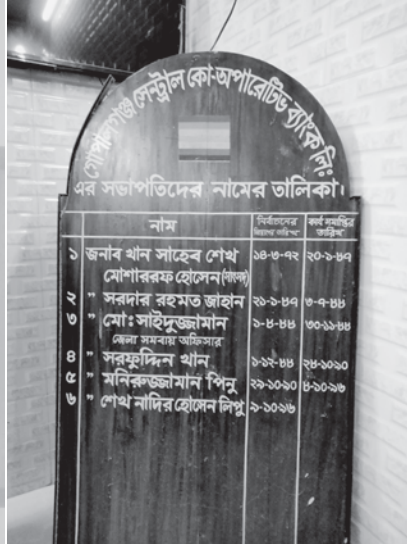 গোপালগঞ্জ সেন্ট্রাল কো-অপারেটিভ ব্যাংক লিঃ
এর সভাপতিদের নামের তালিকা।
নাম নির্বাচনের তারিখ কার্য সমাপ্তির তারিখ
১ জনাব খান সাহেব শেখ ১৪-৩-৭২ ২০-১-৮৭
মোশাররফ হোসেন
২ " সরদার রহমত জাহান ২১-১-৮৭ ৩-৭-৮৮
৩ " মো: সাইদুজ্জামান ১-৮-৮৮ ৩০-১১-৮৮
জেলা সমবায় অফিসার
৪ " সরফুদ্দিন খান ১-১২-৮৮ ২৮-১০-৯০
৫ " মনিরুজ্জামান পিনু ২৯-১০-৯০ ৮-১০-৯৬
৬ " শেখ নাদির হোসেন লিপু ৯-১০-৯৬